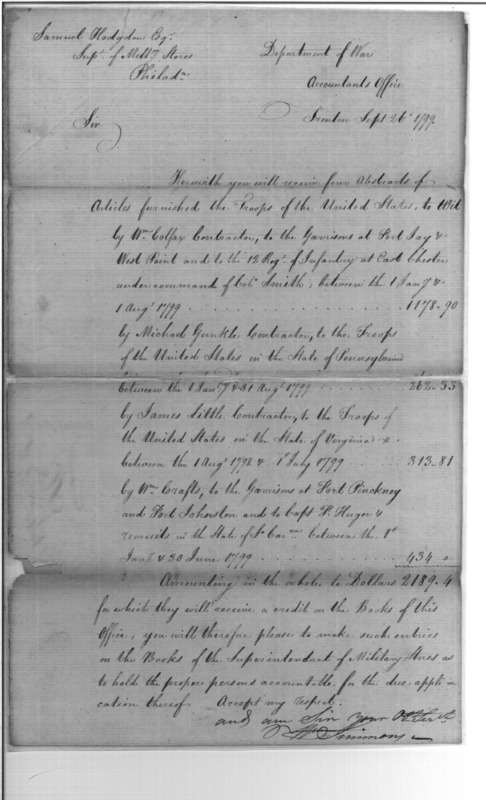 Samuel Hodgdon Esqr
Supt. of Milty Stores
Philada
Department of War
Accountants Office
Trenton Sept 26th 1799.
Sir
Herewith you will receive four Abstracts of
Articles furnished the Troops of the United States, to Wit
by Wm Colfax Contractor, to the Garrisons at Fort Jay &
West Point and to the 12 Regt of Infantry at East Chester
under command of Col Smith, between the 1 Jany &
1 Augt 1799 . . . . . . . . 1178.90
by Michael Gunkle Contractor, to the Troops
of the United States in the State of Pennsylvania
between the 1 Jany & 31 Augt 1799 . . . . . . . . 262.33
by James Tittle Contractor, to the Troops of
the United States in the State of Virginia &
between the 1 Augt 1798 & 1st July 1799 . . . . 313.81
by Wm Crafts, to the Garrisons at Fort Pinckney
and Fort Johnston and to Capt Huger &
recruits in the State of So Carona between the 1st
Jany & 30 June 1799 . . . . . . . . 434
Amounting in the whole to Dollars 2189.4
for which they will receive a credit on the Books of this
Office, you will therefore please to make such entries
on the Books of the Superintendent of Military Stores as
to hold the proper persons accountable for the due appli
cation thereof. Accept my respect.
and am Sir your Ob Servt
Wm Simmons